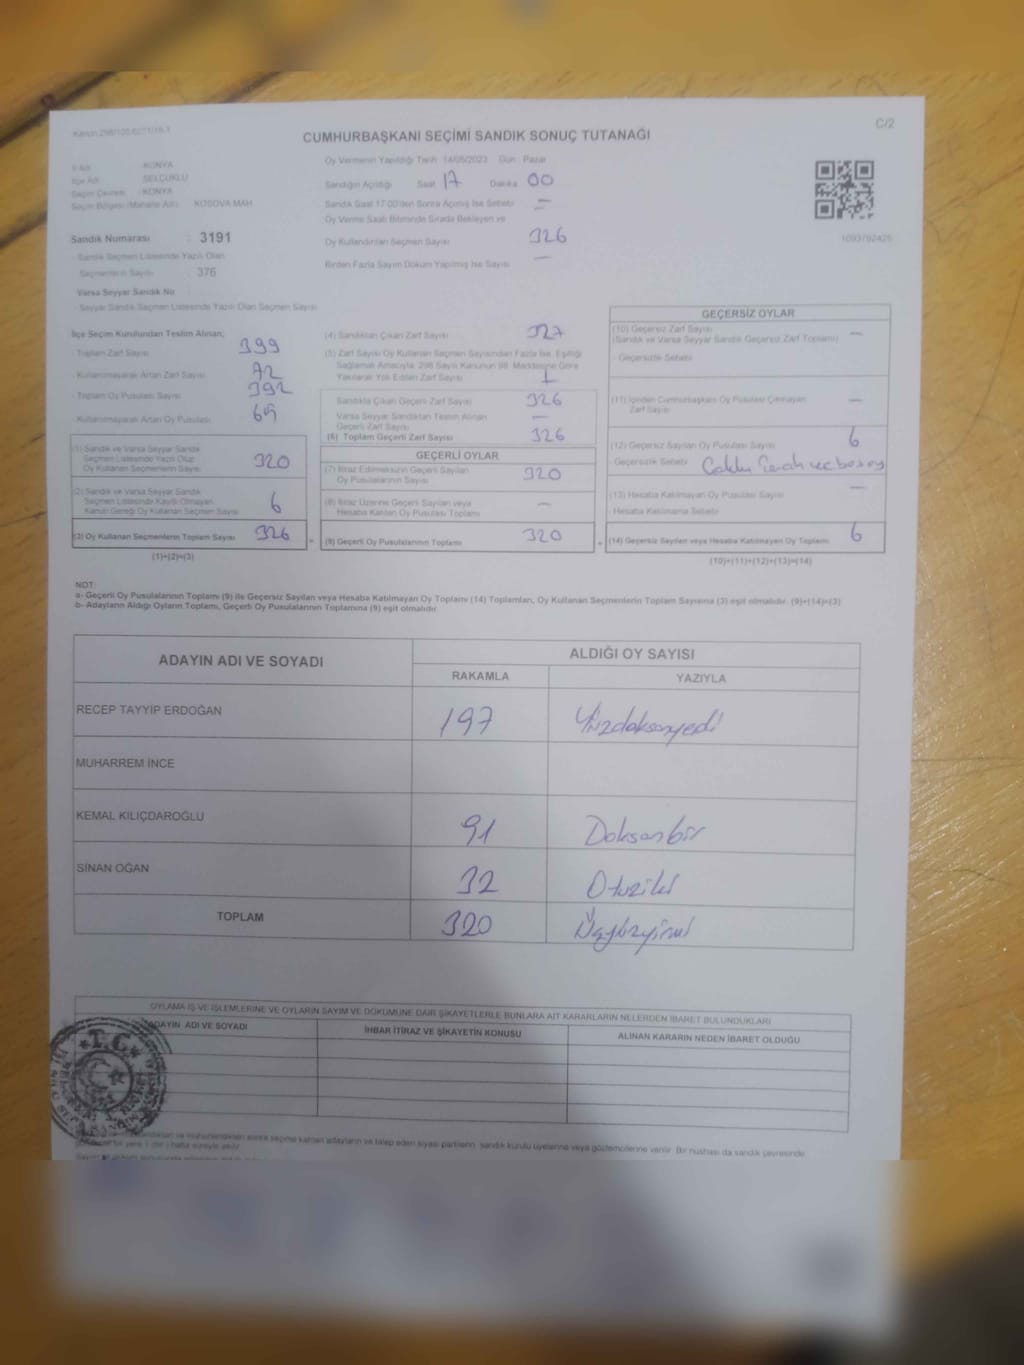 Kanun 298/105-6271/16-1
C/2
CUMHURBAŞKANI SEÇİMİ SANDIK SONUÇ TUTANAĞI
İl Adı : KONYA
İlçe Adı : SELÇUKLU
Seçim Çevresi : KONYA
Seçim Bölgesi (Mahalle Adı) : KOSOVA MAH
Sandık Numarası : 3191
- Sandık Seçmen Listesinde Yazılı Olan
Seçmenlerin Sayısı : 376
Varsa Seyyar Sandık No
- Seyyar Sandık Seçmen Listesinde Yazılı Olan Seçmen Sayısı
Oy Vermenin Yapıldığı Tarih : 14/05/2023 Gün : Pazar
Sandığın Açıldığı Saat 17 Dakika 00
Sandık Saat 17.00'den Sonra Açılmış İse Sebebi —
Oy Verme Saati Bitiminde Sırada Bekleyen ve
Oy Kullandırılan Seçmen Sayısı 326
Birden Fazla Sayım Döküm Yapılmış İse Sayısı —
1093792425
İlçe Seçim Kurulundan Teslim Alınan;
- Toplam Zarf Sayısı 399
- Kullanılmayarak Artan Zarf Sayısı 72
- Toplam Oy Pusulası Sayısı 392
- Kullanılmayarak Artan Oy Pusulası 69
(1) Sandık ve Varsa Seyyar Sandık
Seçmen Listesinde Yazılı Olup
Oy Kullanan Seçmenlerin Sayısı 320
(2) Sandık ve Varsa Seyyar Sandık
Seçmen Listesinde Kayıtlı Olmayan
Kanun Gereği Oy Kullanan Seçmen Sayısı 6
(3) Oy Kullanan Seçmenlerin Toplam Sayısı 326
(1)+(2)=(3)
(4) Sandıktan Çıkan Zarf Sayısı 327
(5) Zarf Sayısı Oy Kullanan Seçmen Sayısından Fazla İse, Eşitliği
Sağlamak Amacıyla, 298 Sayılı Kanunun 98. Maddesine Göre
Yakılarak Yok Edilen Zarf Sayısı 1
Sandıkta Çıkan Geçerli Zarf Sayısı 326
Varsa Seyyar Sandıktan Teslim Alınan
Geçerli Zarf Sayısı —
(6) Toplam Geçerli Zarf Sayısı 326
GEÇERLİ OYLAR
(7) İtiraz Edilmeksizin Geçerli Sayılan
Oy Pusulasının Sayısı 320
(8) İtiraz Üzerine Geçerli Sayılan veya
Hesaba Katılan Oy Pusulası Toplamı —
(9) Geçerli Oy Pusulalarının Toplamı 320
GEÇERSİZ OYLAR
(10) Geçersiz Zarf Sayısı —
(Sandık ve Varsa Seyyar Sandık Geçersiz Zarf Toplamı)
- Geçersizlik Sebebi
(11) İçinden Cumhurbaşkanı Oy Pusulası Çıkmayan
Zarf Sayısı —
(12) Geçersiz Sayılan Oy Pusulası Sayısı 6
- Geçersizlik Sebebi
(13) Hesaba Katılmayan Oy Pusulası Sayısı —
- Hesaba Katılmama Sebebi
(14) Geçersiz Sayılan veya Hesaba Katılmayan Oy Toplamı 6
(10)+(11)+(12)+(13)=(14)
NOT:
a- Geçerli Oy Pusulalarının Toplamı (9) ile Geçersiz Sayılan veya Hesaba Katılmayan Oy Toplamı (14) Toplamları, Oy Kullanan Seçmenlerin Toplam Sayısına (3) eşit olmalıdır. (9)+(14)=(3)
b- Adayların Aldığı Oyların Toplamı, Geçerli Oy Pusulalarının Toplamına (9) eşit olmalıdır.
ADAYIN ADI VE SOYADI
ALDIĞI OY SAYISI
RAKAMLA YAZIYLA
RECEP TAYYİP ERDOĞAN 197 Yüzdoksanyedi
MUHARREM İNCE
KEMAL KILIÇDAROĞLU 91 Doksanbir
SİNAN OĞAN 32 Otuziki
TOPLAM 320 Üçyüzyirmi
OYLAMA İŞ VE İŞLEMLERİNE VE OYLARIN SAYIM VE DÖKÜMÜNE DAİR ŞİKAYETLERLE BUNLARA AİT KARARLARIN NELERDEN İBARET BULUNDUKLARI
ADAYIN ADI VE SOYADI
İHBAR İTİRAZ VE ŞİKAYETİN KONUSU
ALINAN KARARIN NEDEN İBARET OLDUĞU
T.C.
sonra seçime katılan adayların ve talep eden siyasi partilerin, sandık kurulu üyelerine veya gözlemcilerine verilir. Bir nüshası da sandık çevresinde